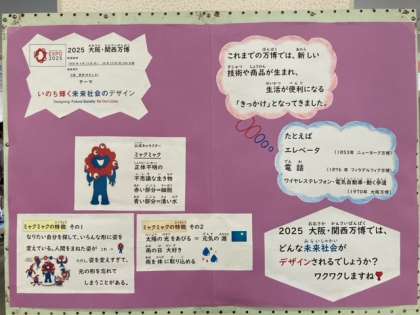 EXPO
2025
2025 大阪・関西万博
テーマ
いのち輝く未来社会のデザイン
Designing Future Society for Our Lives
公式キャラクター
ミャクミャク
正体不明の
不思議な生き物
赤い部分=細胞
青い部分=清い水
ミャクミャクの特徴 その1
なりたい自分を探して、いろんな形に姿
を変えている。人間をまねた姿が
ただし、姿を変えすぎて、
元の形を忘れて
しまうことがある。
ミャクミャクの特徴 その2
太陽の光をあびる = 元気の源
雨の日 大好き
雨を体に取り込める
これまでの万博では、新しい
技術や商品が生まれ、
生活が便利になる
「きっかけ」となってきました。
たとえば
エレベータ
(1853年 ニューヨーク万博)
電話
(1876年 フィラデルフィア万博)
ワイヤレステレフォン・電気自動車・動く歩道
(1970年 大阪万博)
2025 大阪・関西万博では、
どんな未来社会が
デザインされるでしょうか?
ワクワクしますね